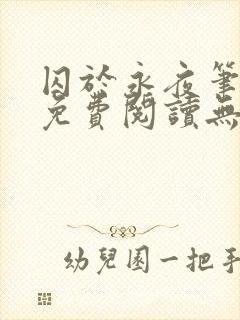 囚於永夜筆
免費閱讀無
幼兒園一把手